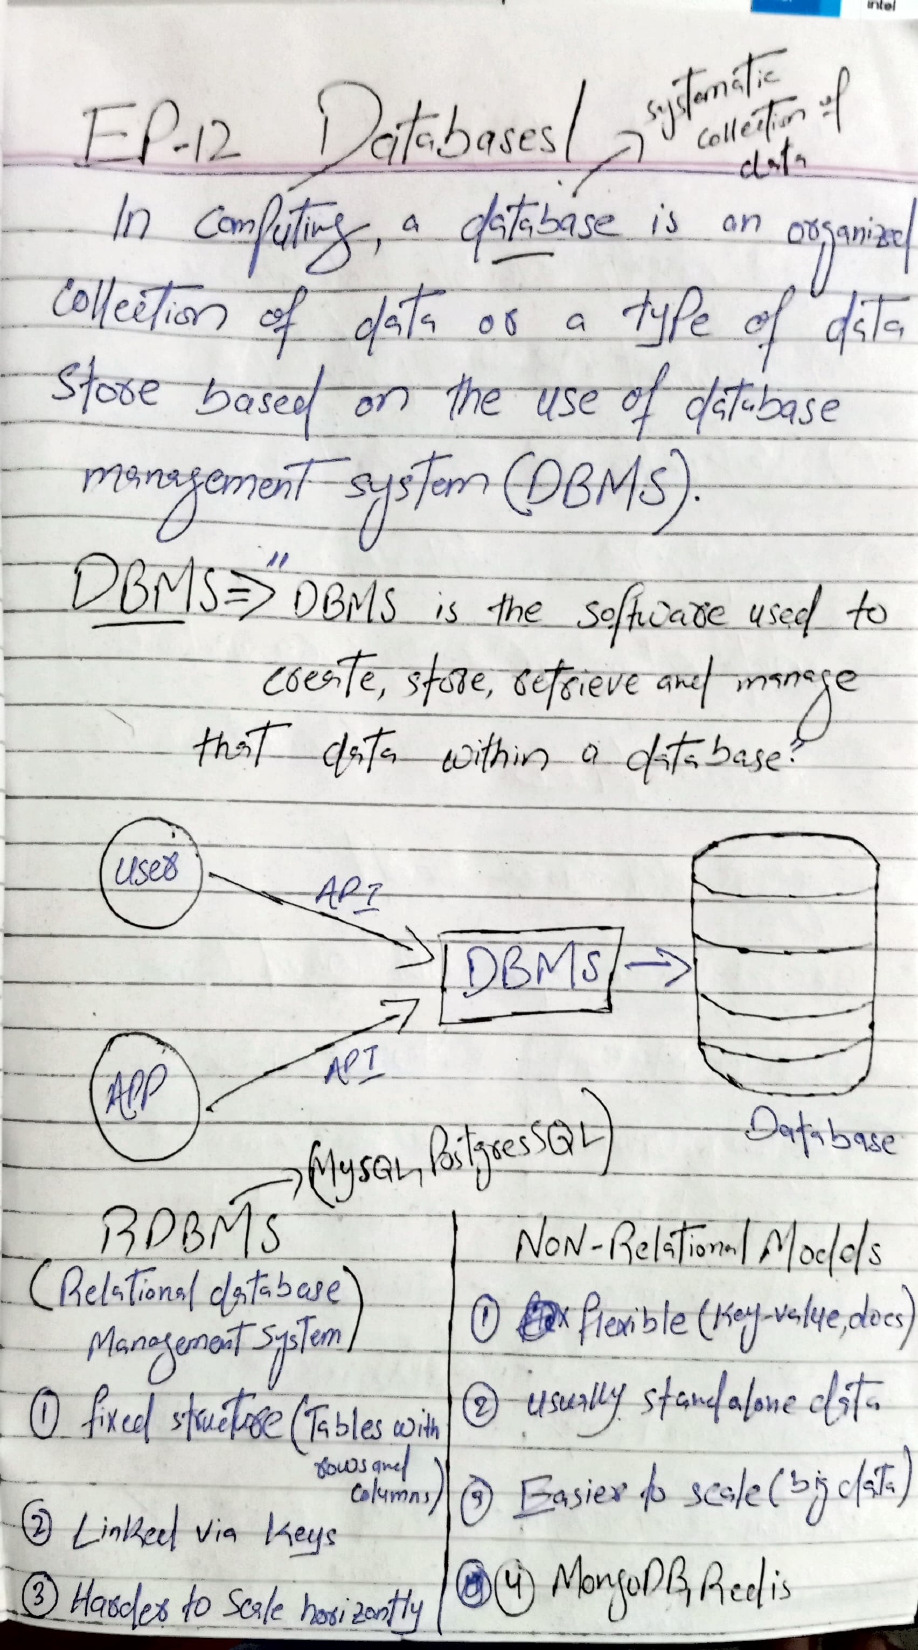 intel
EP-12 Databases
systematic
collection of
data
In Computing, a database is an organized
collection of data or a type of data
store based on the use of database
management system (DBMS).
DBMS => "DBMS is the software used to
create, store, retrieve and manage
that data within a database"
user
API
DBMS
APP
API
Database
(MySQL, PostgresSQL)
RDBMS
(Relational database
Management System)
① fixed structure (Tables with
rows and
columns)
② Linked via keys
③ Harder to Scale horizontly
NON-Relational Models
① flexible (Key-value, docs)
② usually standalone data
③ Easier to scale (big data)
④ MongoDB, Redis